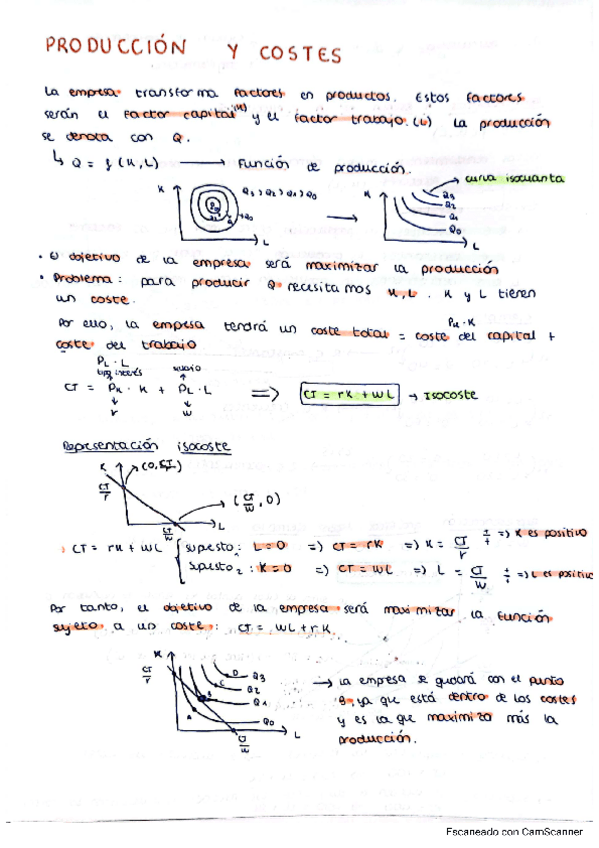 PRODUCCIÓN Y COSTES
La empresa transforma factores en productos. Estos factores
serán el factor capital (K) y el factor trabajo. (L) La producción
se denota con Q.
↳ Q = f (K, L) → Función de producción.
→ curva isocuanta
K
Q3 > Q2 > Q1 > Q0
Q0
L
K
Q3
Q2
Q1
Q0
L
• El objetivo de la empresa será maximizar la producción
• Problema: para producir Q necesitamos K, L. K y L tienen
un coste.
Por ello, la empresa tendrá un coste total = coste del capital +
PK · K
coste del trabajo
PL · L
salario
CT = PK · K + PL · L => CT = rK + wL → Isocoste
r
w
Representación isocoste
K
CT/r
(CT/w, 0)
L
CT/w
CT = rK + wL
supuesto: L = 0 => CT = rK => K = CT/r + + => K es positivo
supuesto2: K = 0 => CT = wL => L = CT/w + + => L es positivo
Por tanto, el objetivo de la empresa será maximizar la función
sujeto a un coste: CT = wL + rK.
K
CT/r
D
Q3
C
Q2
B
Q1
A
Q0
L
CT/w
→ La empresa se quedará con el punto
B, ya que está dentro de los costes
y es la que maximiza más la
producción.
Escaneado con CamScanner